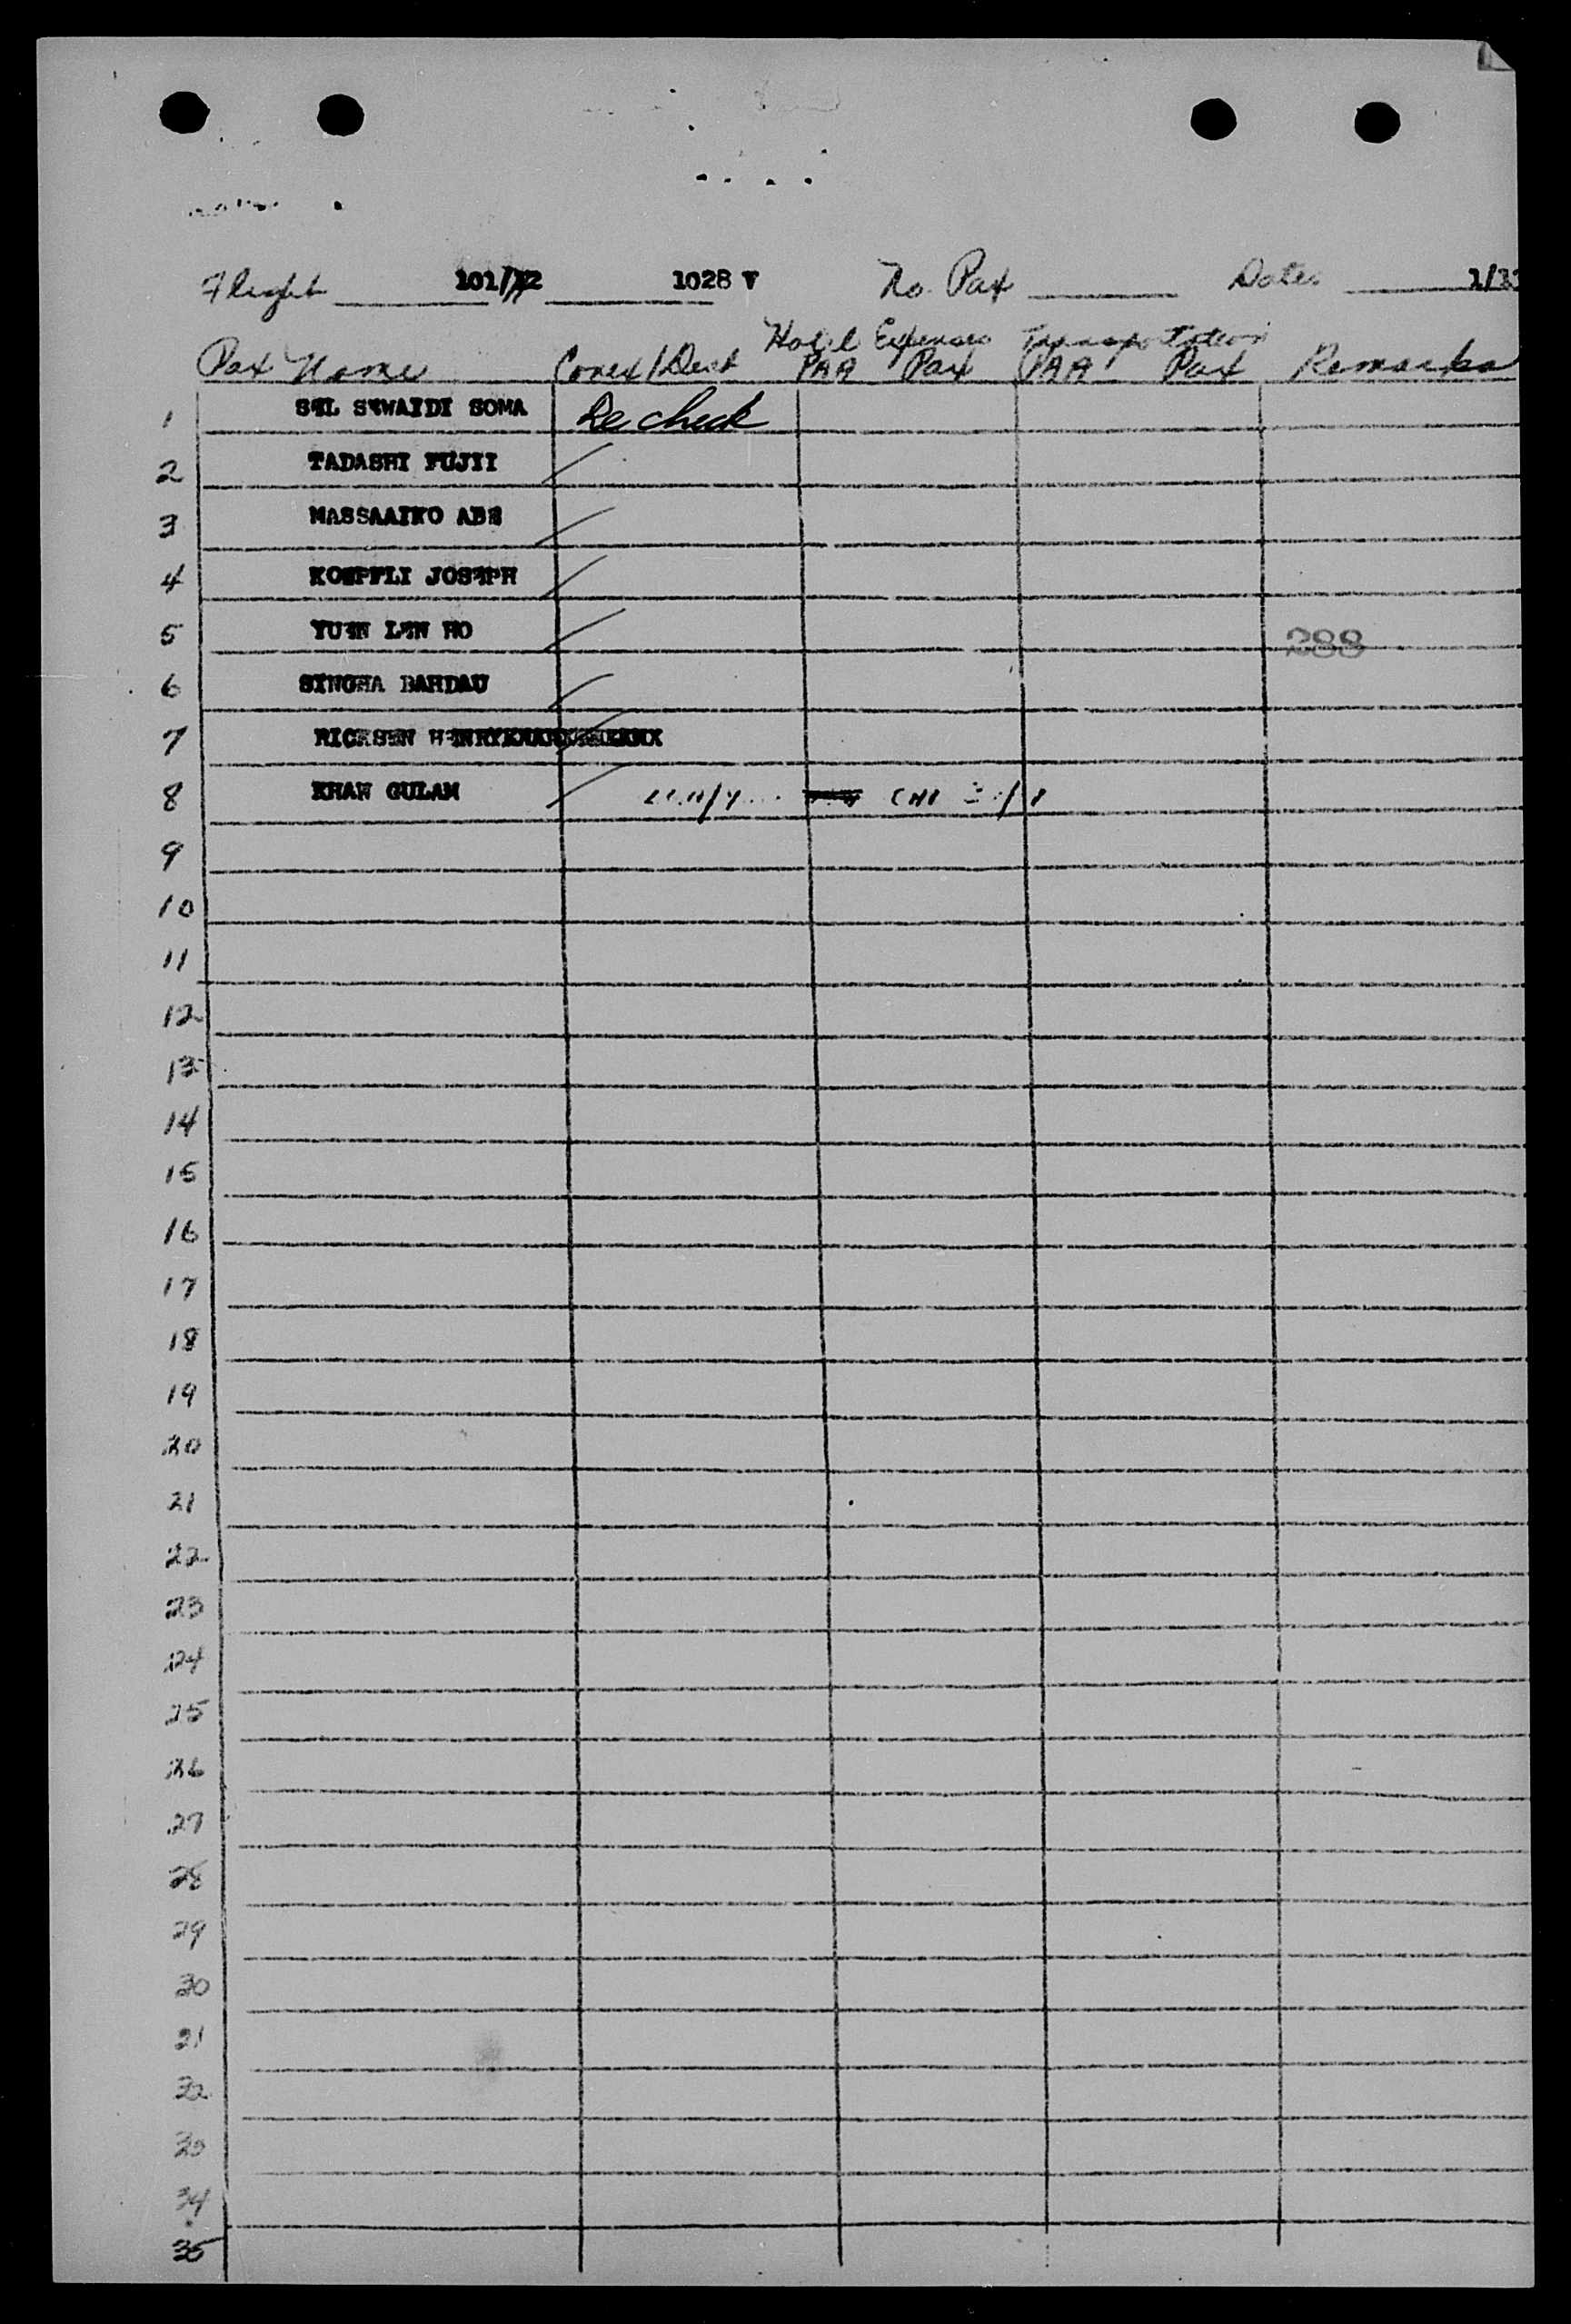 Flight 101/ 1028 V No. Pax Date 1/
Hotel Expenses Transportation
Pax Name Conex/Dest PAA Pax PAA Pax Remarks
1 SEL SEWAIDI SOMA Re check
2 TADASHI FUJII
3 MASSAAIKO ABE
4 KOEPFLI JOSEPH
5 YUEN LEN HO
288
6 SINGHA BAHDAU
7 RICKSEN HENRY
8 KHAN GULAM CHI
9
10
11
12
13
14
15
16
17
18
19
20
21
22
23
24
25
26
27
28
29
30
31
32
33
34
35